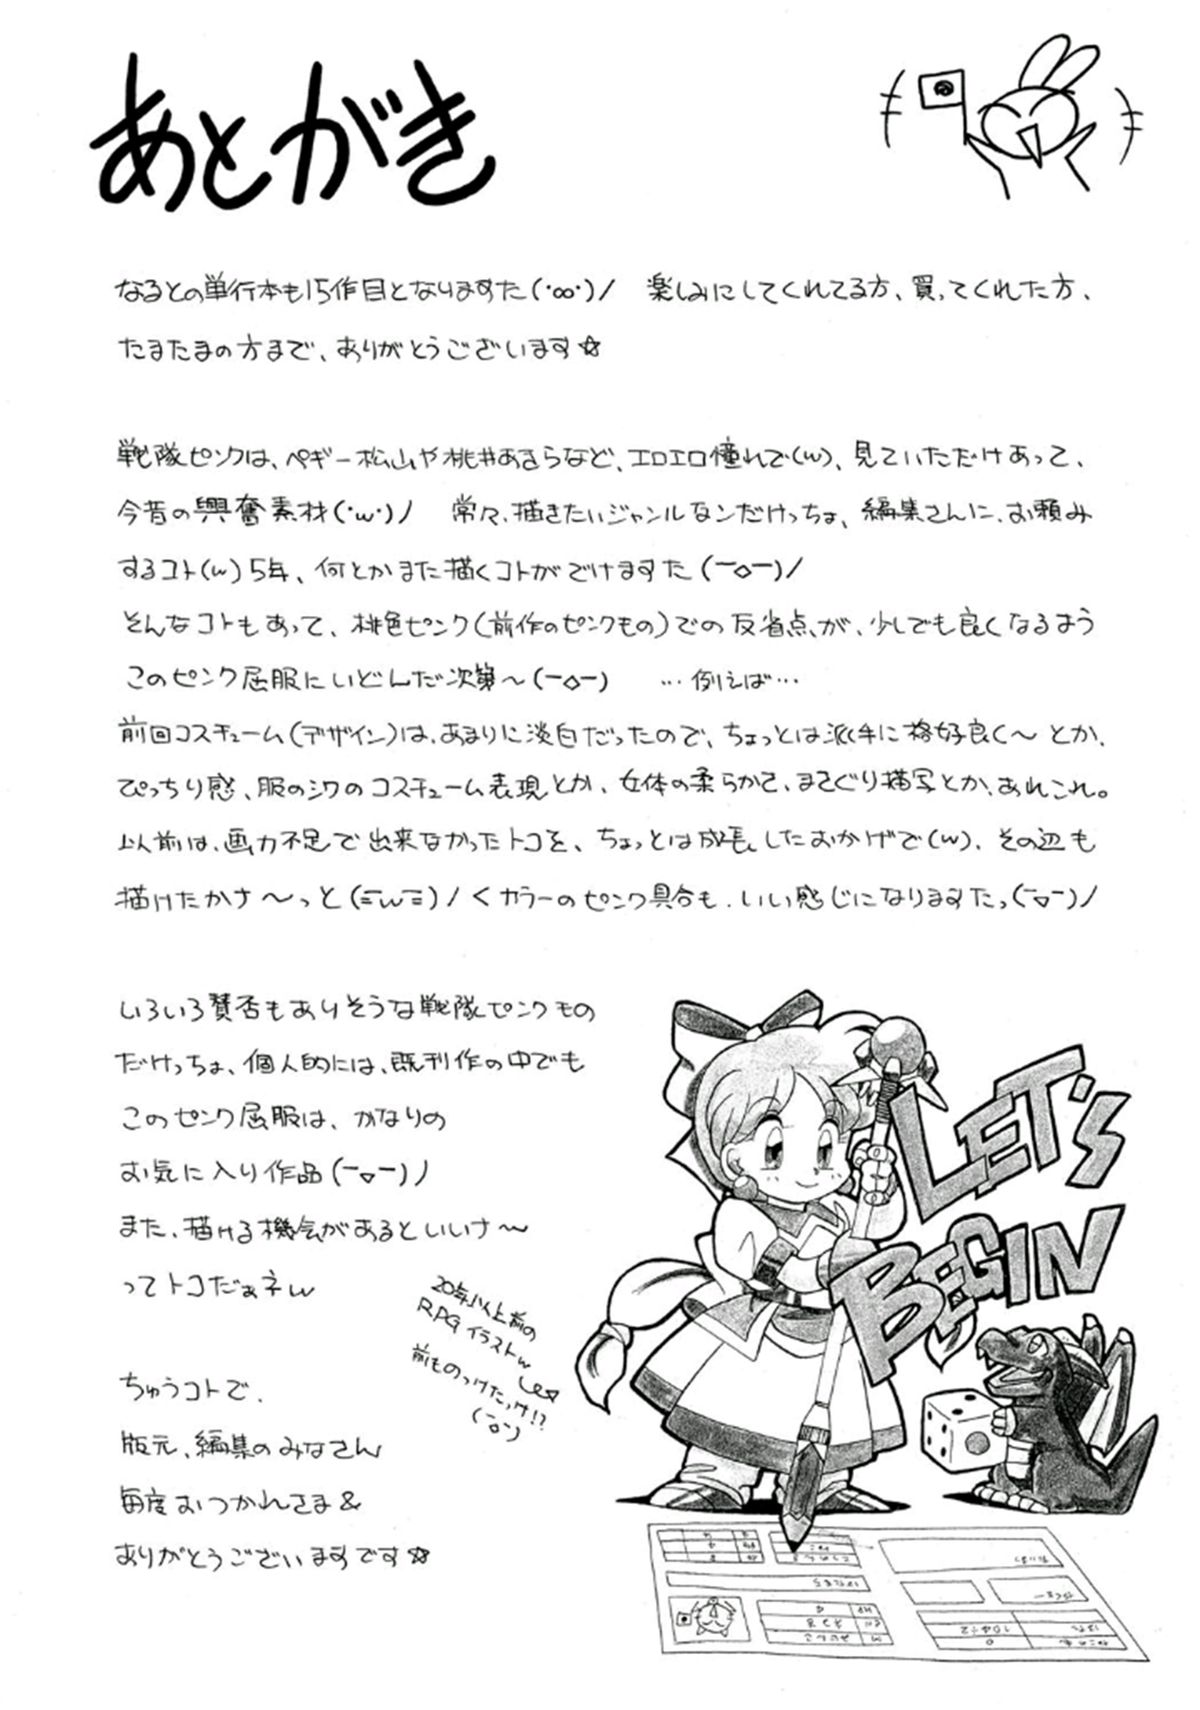 あとがき
なるとの単行本も15作目となりますた(・∞・)/　楽しみにしてくれてる方、買ってくれた方、
たまたまの方まで、ありがとうございます☆
戦隊ピンクは、ペギー松山や桃井あきらなど、エロエロ憧れで(w)、見ていただけあって、
今昔の興奮素材(・w・)ノ　常々、描きたいジャンルなンだけっちょ、編集さんに、お頼み
するコト(w)5年、何とかまた描くコトがでけますた(ー◇ー)/
そんなコトもあって、桃色ピンク(前作のピンクもの)での反省点が、少しでも良くなるよう
このピンク屈服にいどんだ次第〜(ー◇ー)　…例えば…
前回コスチューム(デザイン)は、あまりに淡白だったので、ちょっとは派手に格好良く〜とか、
ぴっちり感、服のシワのコスチューム表現とか、女体の柔らかさ、まさぐり描写とか、あれこれ。
以前は、画力不足で出来なかったトコを、ちょっとは成長したおかげで(w)、その辺も
描けたかナ〜っと(ΞwΞ)/くカラーのピンク具合も、いい感じになりますたっ(ー▽ー)/
いろいろ賛否もありそうな戦隊ピンクもの
だけっちょ、個人的には、既刊作の中でも
このピンク屈服は、かなりの
お気に入り作品(ー▽ー)ノ
また、描ける機会があるといいナ〜
ってトコだぁネw
20年以上前の
RPGイラストw
前ものっけたっけ!?
LET'S
BEGIN
ちゅうコトで、
版元、編集のみなさん
毎度おつかれさま&
ありがとうございますです☆